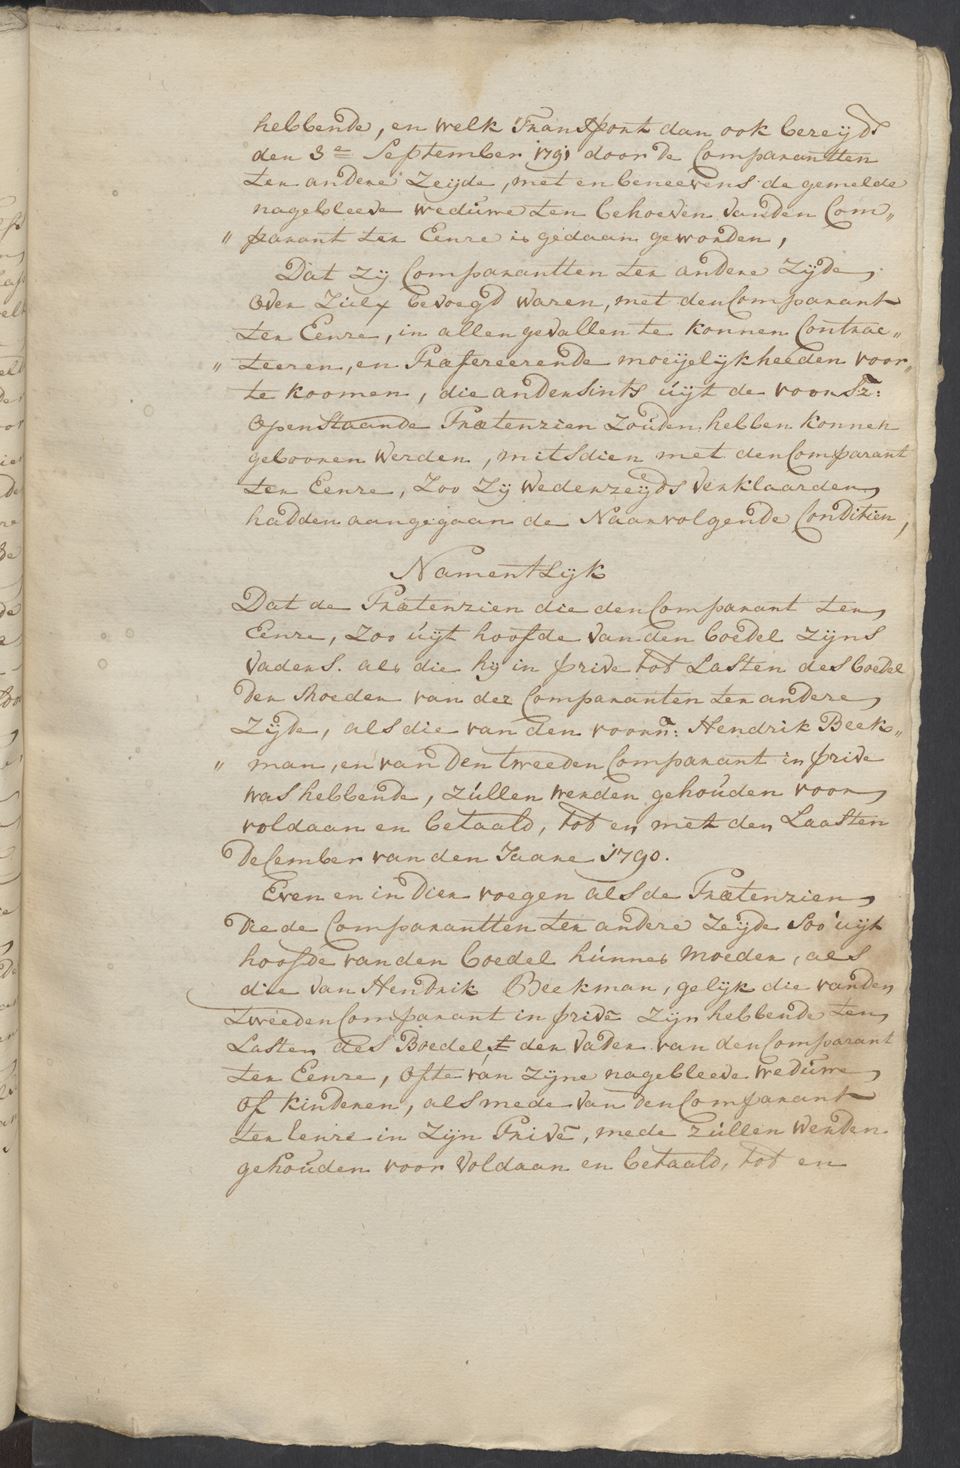 hebbende, en welk Transport dan ook bereijds
den 3e September 1791 door de Comparantten
ter andere Zeijde, met en beneevens de gemelde
nagebleeve weduwe ten behoeven van den Com„
„parant ter Eenre is gedaan geworden,
Dat Zij Comparantten ter andere Zijde,
over Zulx bevoegd waren, met den Comparant
ter Eenre, in allen gevallen te konnen Contrac„
„teeren, en Præfereerende moeijelijkheeden voor„
te koomen, die andersints uijt de voorsz:
openstaande Prætenzien Zouden hebben konnen
gebooren werden, mitsdien met den Comparant
ter Eenre, Zoo Zij wederzeijds verklaarden,
hadden aangegaan de Naarvolgende Conditien,
Namentlijk
Dat de Prætenzien die den Comparant ter
Eenre, Zoo uijt hoofde van den boedel Zijns
vaders. als die hij in privé tot Lasten des boedel
der Moeder van dee Comparanten ter andere
Zijde, als die van den voorn: Hendrik Beek„
„man, en van den tweeden Comparant in privé
was hebbende, Zullen werden gehouden voor
voldaan en betaald, tot en met den Laasten
December van den Jaare 1790.
Even en in dier voegen als de Prætenzien
die de Comparantten ter andere Zeijde Soo uijt
hoofde van den boedel hunner Moeder, als
die van Hendrik Beekman, gelijk die van den
tweeden Comparant in privé Zijn hebbende ten
Lasten des Boedels der vader van den Comparant
ter Eenre, ofte van Zijne nagebleeve weduwe
of kinderen, als mede van den Comparant
ter Eenre in Zijn Privé, mede Zullen werden
gehouden voor voldaan en betaald, tot en